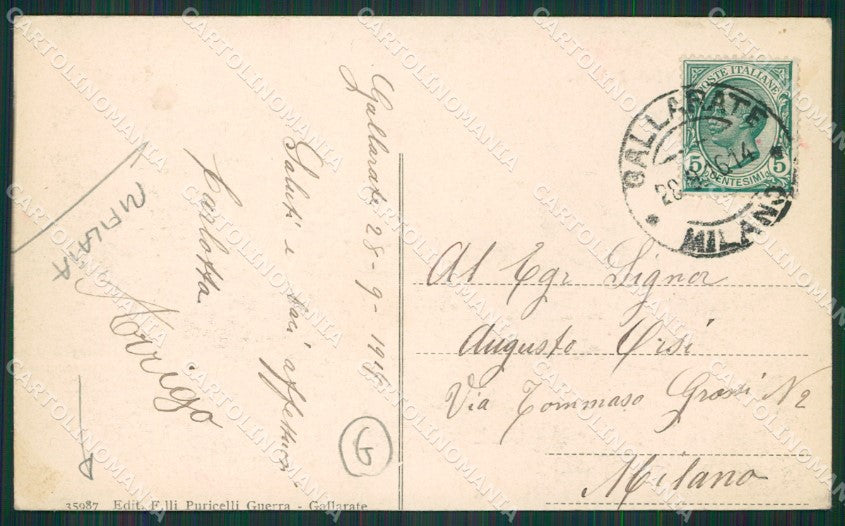 Gallarate 28-9-1915
Saluti e baci affettuosi
Carlotta
Arrigo
RIFILATA
POSTE ITALIANE
5 5
CENTESIMI
GALLARATE
MILANO
Al Egr Signor
Augusto Orsi
Via Tommaso Grossi N 2
Milano
35987 Edit. F.lli Puricelli Guerra - Gallarate
CARTOLINOMANIA